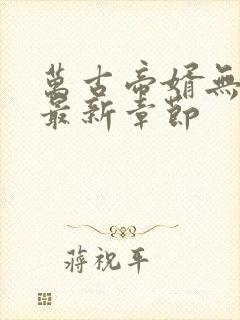 萬古帝婿無
最新章節
蔣祝平